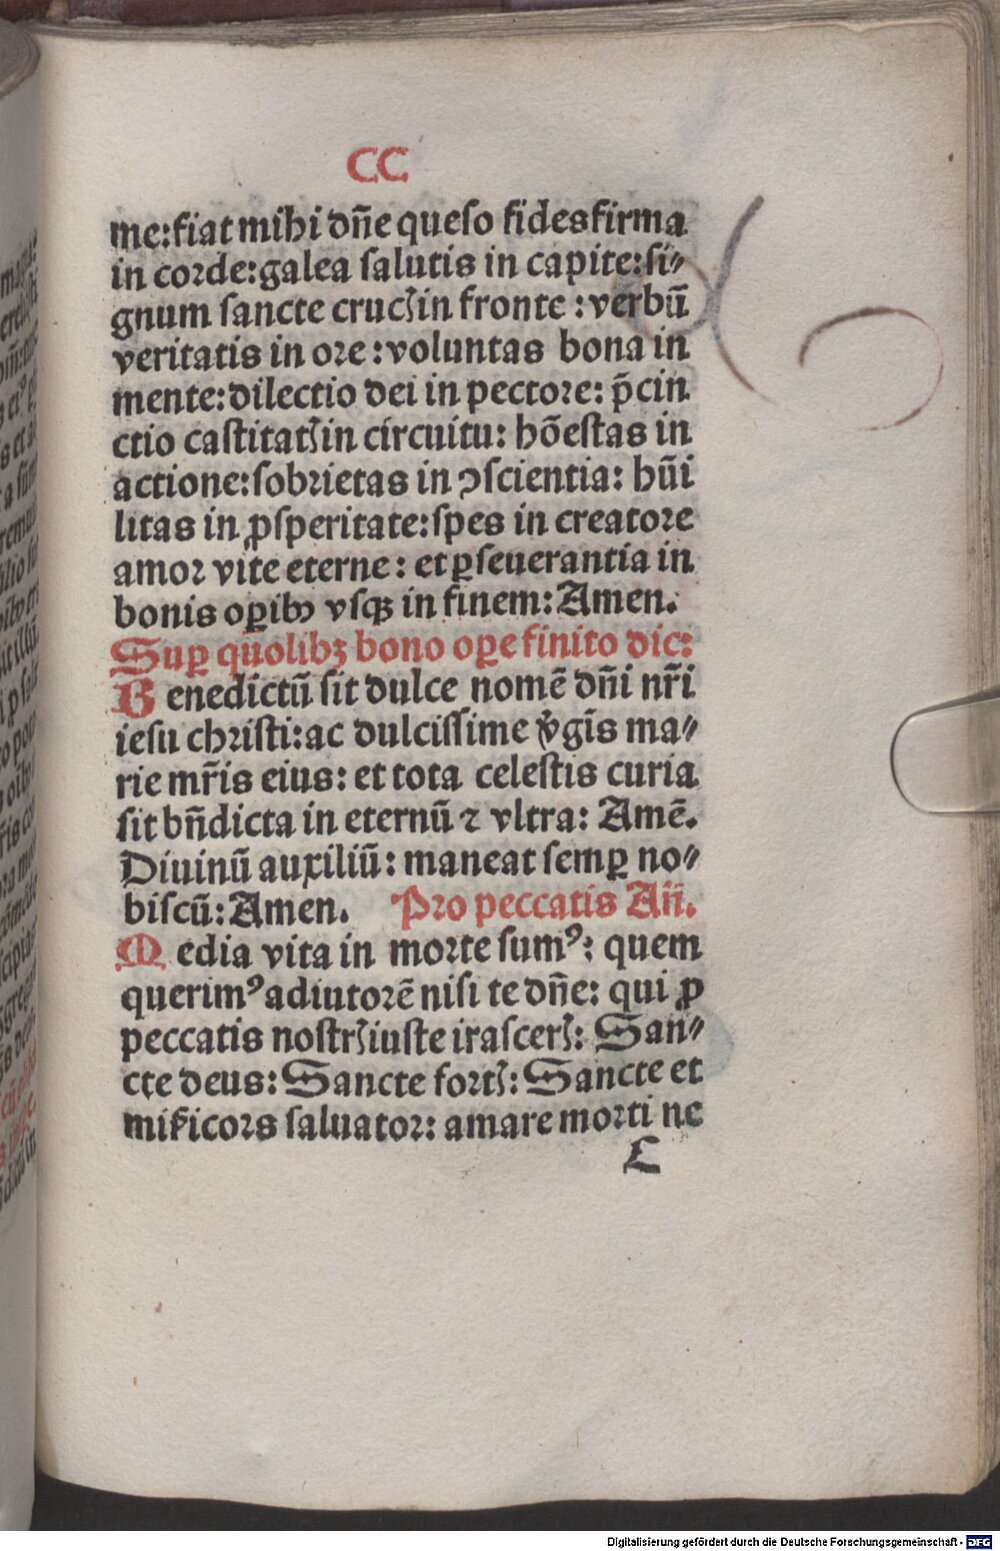 CC
me:fiat mihi dn̄e queſo fides firma
in corde:galea ſalutis in capite:ſi⸗
gnum ſancte crucꝭ in fronte :verbū
veritatis in ore:voluntas bona in
mente:dilectio dei in pectore: p̄cin
ctio caſtitatꝭ in circuitu: hōeſtas in
actione:ſobrietas in ↄſcientia: hūi
litas in ꝓſperitate:ſpes in creatore
amor vite eterne: et ꝑſeuerantia in
bonis oꝑibꝰ vſqꝫ in finem:Amen.
Suꝑ quolibꝫ bono oꝑe finito dic:
Benedictū ſit dulce nomē dn̄i nr̄i
ieſu chriſti:ac dulciſſime v̄gīs ma⸗
rie mr̄is eius: et tota celeſtis curia
ſit bn̄dicta in eternū ⁊ vltra: Amē.
Diuinū auxiliū: maneat ſemꝑ no⸗
biſcū:Amen. Pro peccatis An̄.
Media vita in morte ſumꝰ: quem
querimꝰ adiutorē niſi te dn̄e: qui ꝓ
peccatis noſtrꝭ iuſte iraſcerꝭ: San⸗
cte deus: Sancte fortꝭ: Sancte et
mif̄icors ſaluator: amare morti ne
L
Digitalisierung gefördert durch die Deutsche Forschungsgemeinschaft - DFG